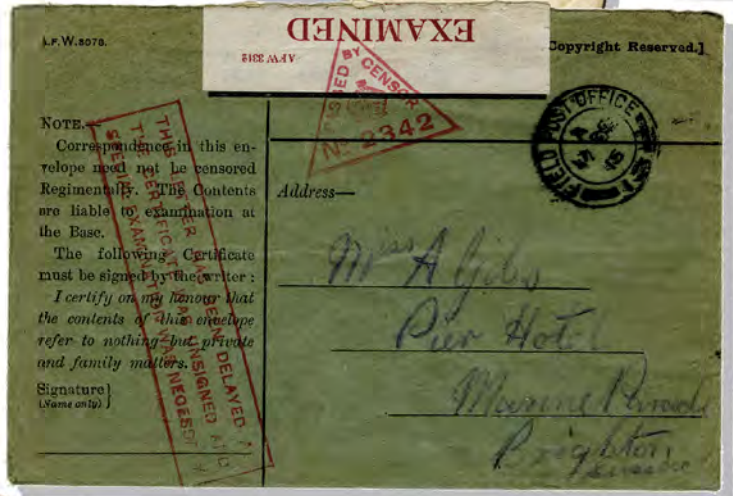 EXAMINED
A.F.W. 3312
A.F.W.3078.
Copyright Reserved.]
PASSED BY CENSOR
No 2342
FIELD POST OFFICE
NOTE.—
Correspondence in this en-
velope need not be censored
Regimentally. The Contents
are liable to examination at
the Base.
The following Certificate
must be signed by the writer :
I certify on my honour that
the contents of this envelope
refer to nothing but private
and family matters.
Signature}
(Name only)
THIS LETTER HAS BEEN DELAYED
THE CERTIFICATE WAS UNSIGNED AND
SPECIAL EXAMINATION WAS NECESSARY
Address—
Miss A Gibs
Pier Hotel
Marine Parade
Brighton
Sussex